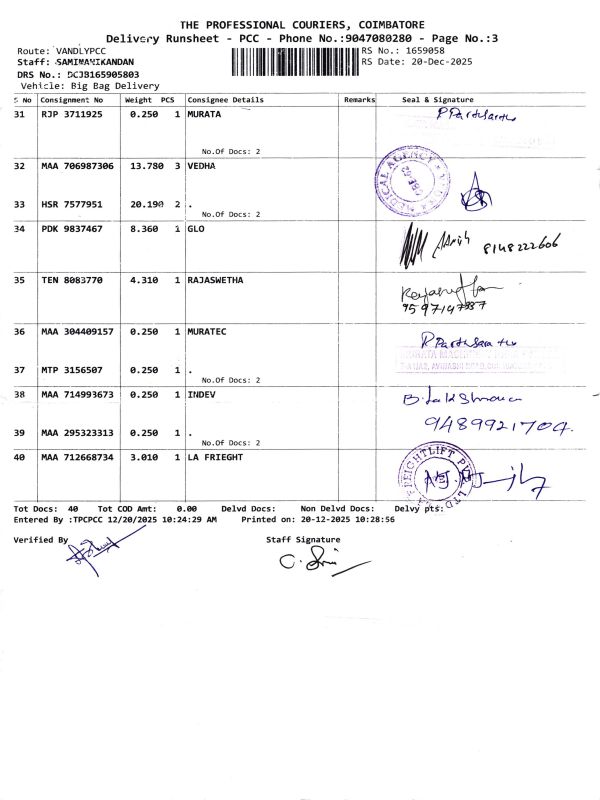 THE PROFESSIONAL COURIERS, COIMBATORE
Delivery Runsheet - PCC - Phone No.:9047080280 - Page No.:3
Route: VANDLYPCC
RS No.: 1659058
Staff: SAMIMANIKANDAN
RS Date: 20-Dec-2025
DRS No.: DCJB165905803
Vehicle: Big Bag Delivery
S No Consignment No Weight PCS Consignee Details Remarks Seal & Signature
31 RJP 3711925 0.250 1 MURATA
No.Of Docs: 2
32 MAA 706987306 13.780 3 VEDHA
MEDICAL AGENCY
33 HSR 7577951 20.190 2 .
No.Of Docs: 2
34 PDK 9837467 8.360 1 GLO
8148222606
35 TEN 8083770 4.310 1 RAJASWETHA
9597147337
36 MAA 304409157 0.250 1 MURATEC
37 MTP 3156507 0.250 1 .
No.Of Docs: 2
38 MAA 714993673 0.250 1 INDEV
9489921704.
39 MAA 295323313 0.250 1 .
No.Of Docs: 2
40 MAA 712668734 3.010 1 LA FRIEGHT
Tot Docs: 40 Tot COD Amt: 0.00 Delvd Docs: Non Delvd Docs: Delvy pts:
Entered By :TPCPCC 12/20/2025 10:24:29 AM Printed on: 20-12-2025 10:28:56
Verified By
Staff Signature